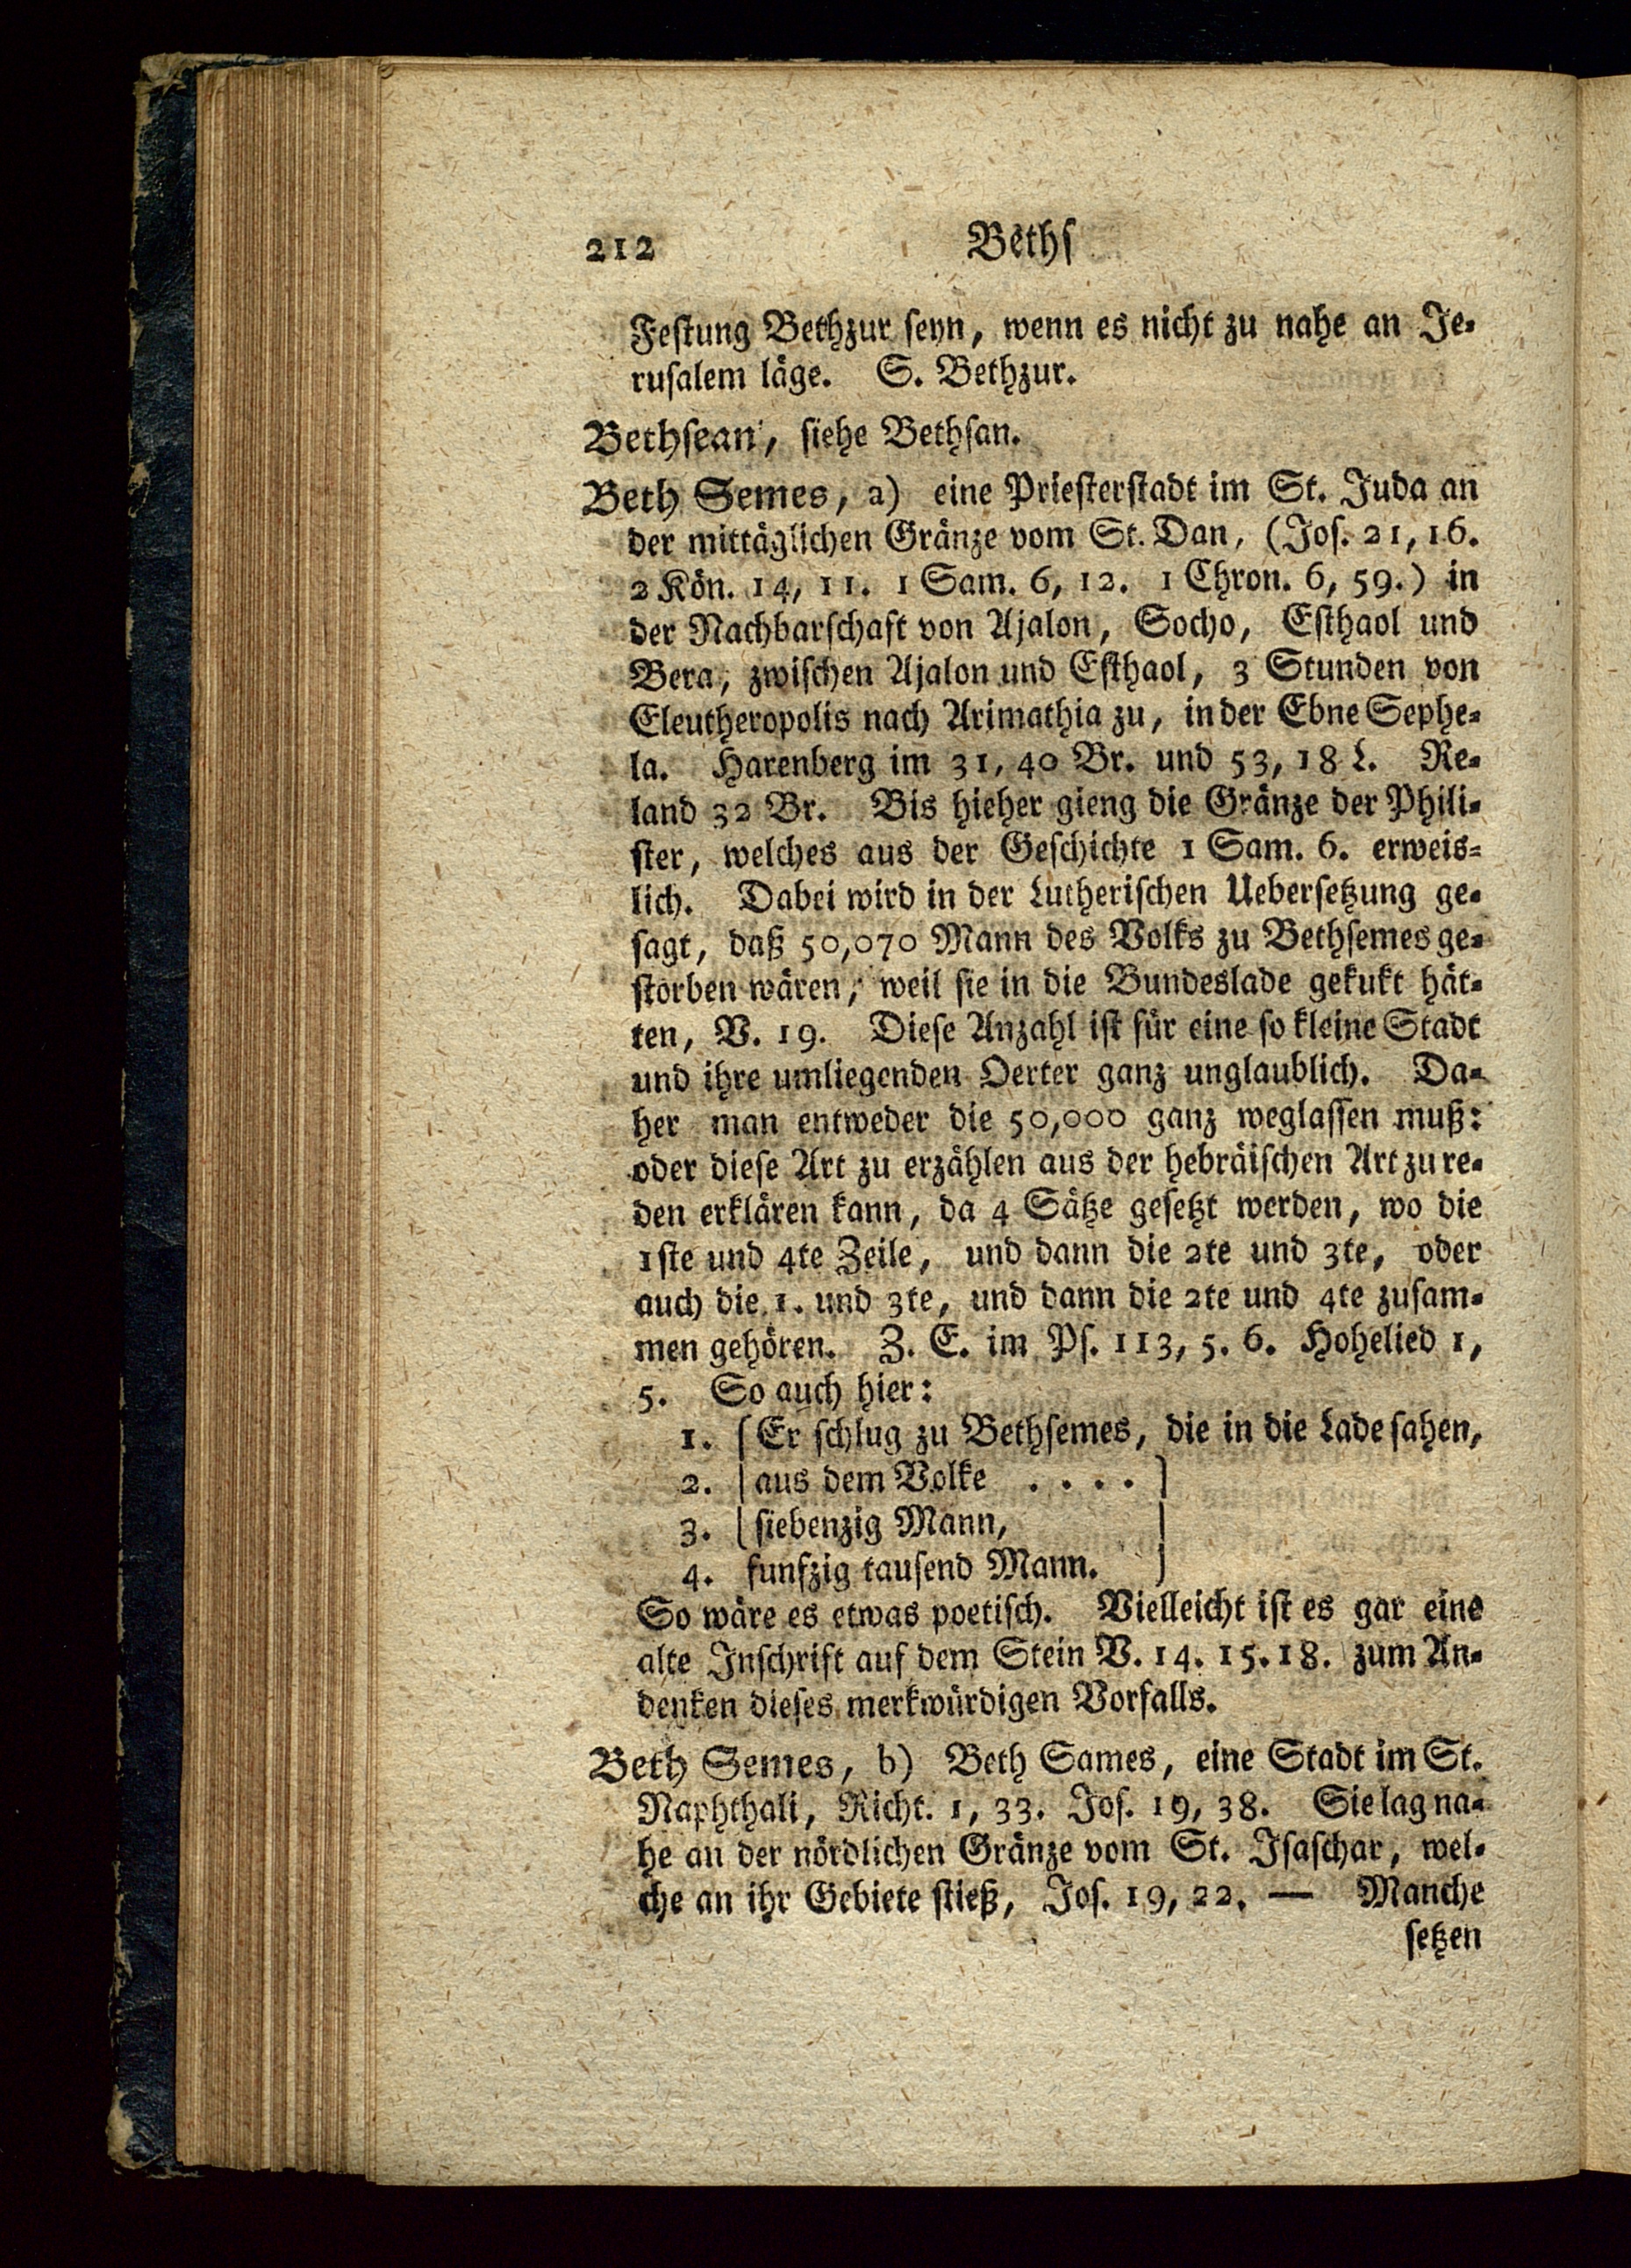 212 Beths
Festung Bethzur seyn, wenn es nicht zu nahe an Je-
rusalem läge. S. Bethzur.
Bethsean, siehe Bethsan.
Beth Semes, a) eine Priesterstadt im St. Juda an
der mittäglichen Gränze vom St. Dan, (Jos. 21, 16.
2 Kön. 14, 11. 1 Sam. 6, 12. 1 Chron. 6, 59.) in
der Nachbarschaft von Ajalon, Socho, Esthaol und
Bera, zwischen Ajalon und Esthaol, 3 Stunden von
Eleutheropolis nach Arimathia zu, in der Ebne Sephe-
la. Harenberg im 31, 40 Br. und 53, 18 L. Re-
land 32 Br. Bis hieher gieng die Gränze der Phili-
ster, welches aus der Geschichte 1 Sam. 6. erweis-
lich. Dabei wird in der Lutherischen Uebersetzung ge-
sagt, daß 50,070 Mann des Volks zu Bethsemes ge-
storben wären, weil sie in die Bundeslade gekukt hät-
ten, V. 19. Diese Anzahl ist für eine so kleine Stadt
und ihre umliegenden Oerter ganz unglaublich. Da-
her man entweder die 50,000 ganz weglassen muß:
oder diese Art zu erzählen aus der hebräischen Art zu re-
den erklären kann, da 4 Sätze gesetzt werden, wo die
1ste und 4te Zeile, und dann die 2te und 3te, oder
auch die 1. und 3te, und dann die 2te und 4te zusam-
men gehören. Z. E. im Ps. 113, 5. 6. Hohelied 1,
5. So auch hier:
1. Er schlug zu Bethsemes, die in die Lade sahen,
2. aus dem Volke . . . .
3. siebenzig Mann,
4. funfzig tausend Mann.
So wäre es etwas poetisch. Vielleicht ist es gar eine
alte Inschrift auf dem Stein V. 14. 15. 18. zum An-
denken dieses merkwürdigen Vorfalls.
Beth Semes, b) Beth Sames, eine Stadt im St.
Naphthali, Richt. 1, 33. Jos. 19, 38. Sie lag na-
he an der nördlichen Gränze vom St. Isaschar, wel-
che an ihr Gebiete stieß, Jos. 19, 22. — Manche
setzen